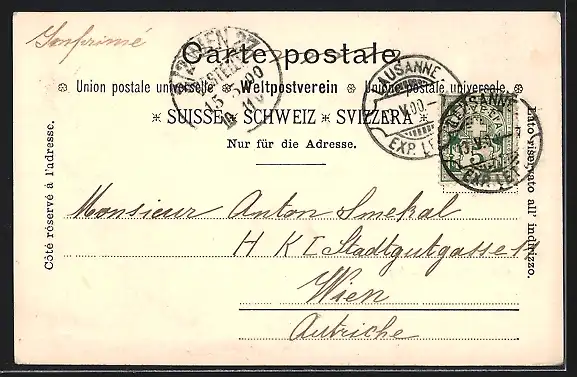 Imprimé
Carte postale.
Union postale universelle. ⊛ Weltpostverein ⊛ Union postale universale.
* SUISSE. SCHWEIZ * SVIZZERA *
Nur für die Adresse.
Côté réservé à l'adresse.
Lato riservato all' indirizzo.
LAUSANNE
EXP. LET.
LAUSANNE
EXP. LET.
5
BESTELLT
Monsieur Anton Smekal
H K I Stadtgutgasse 11
Wien
Autriche